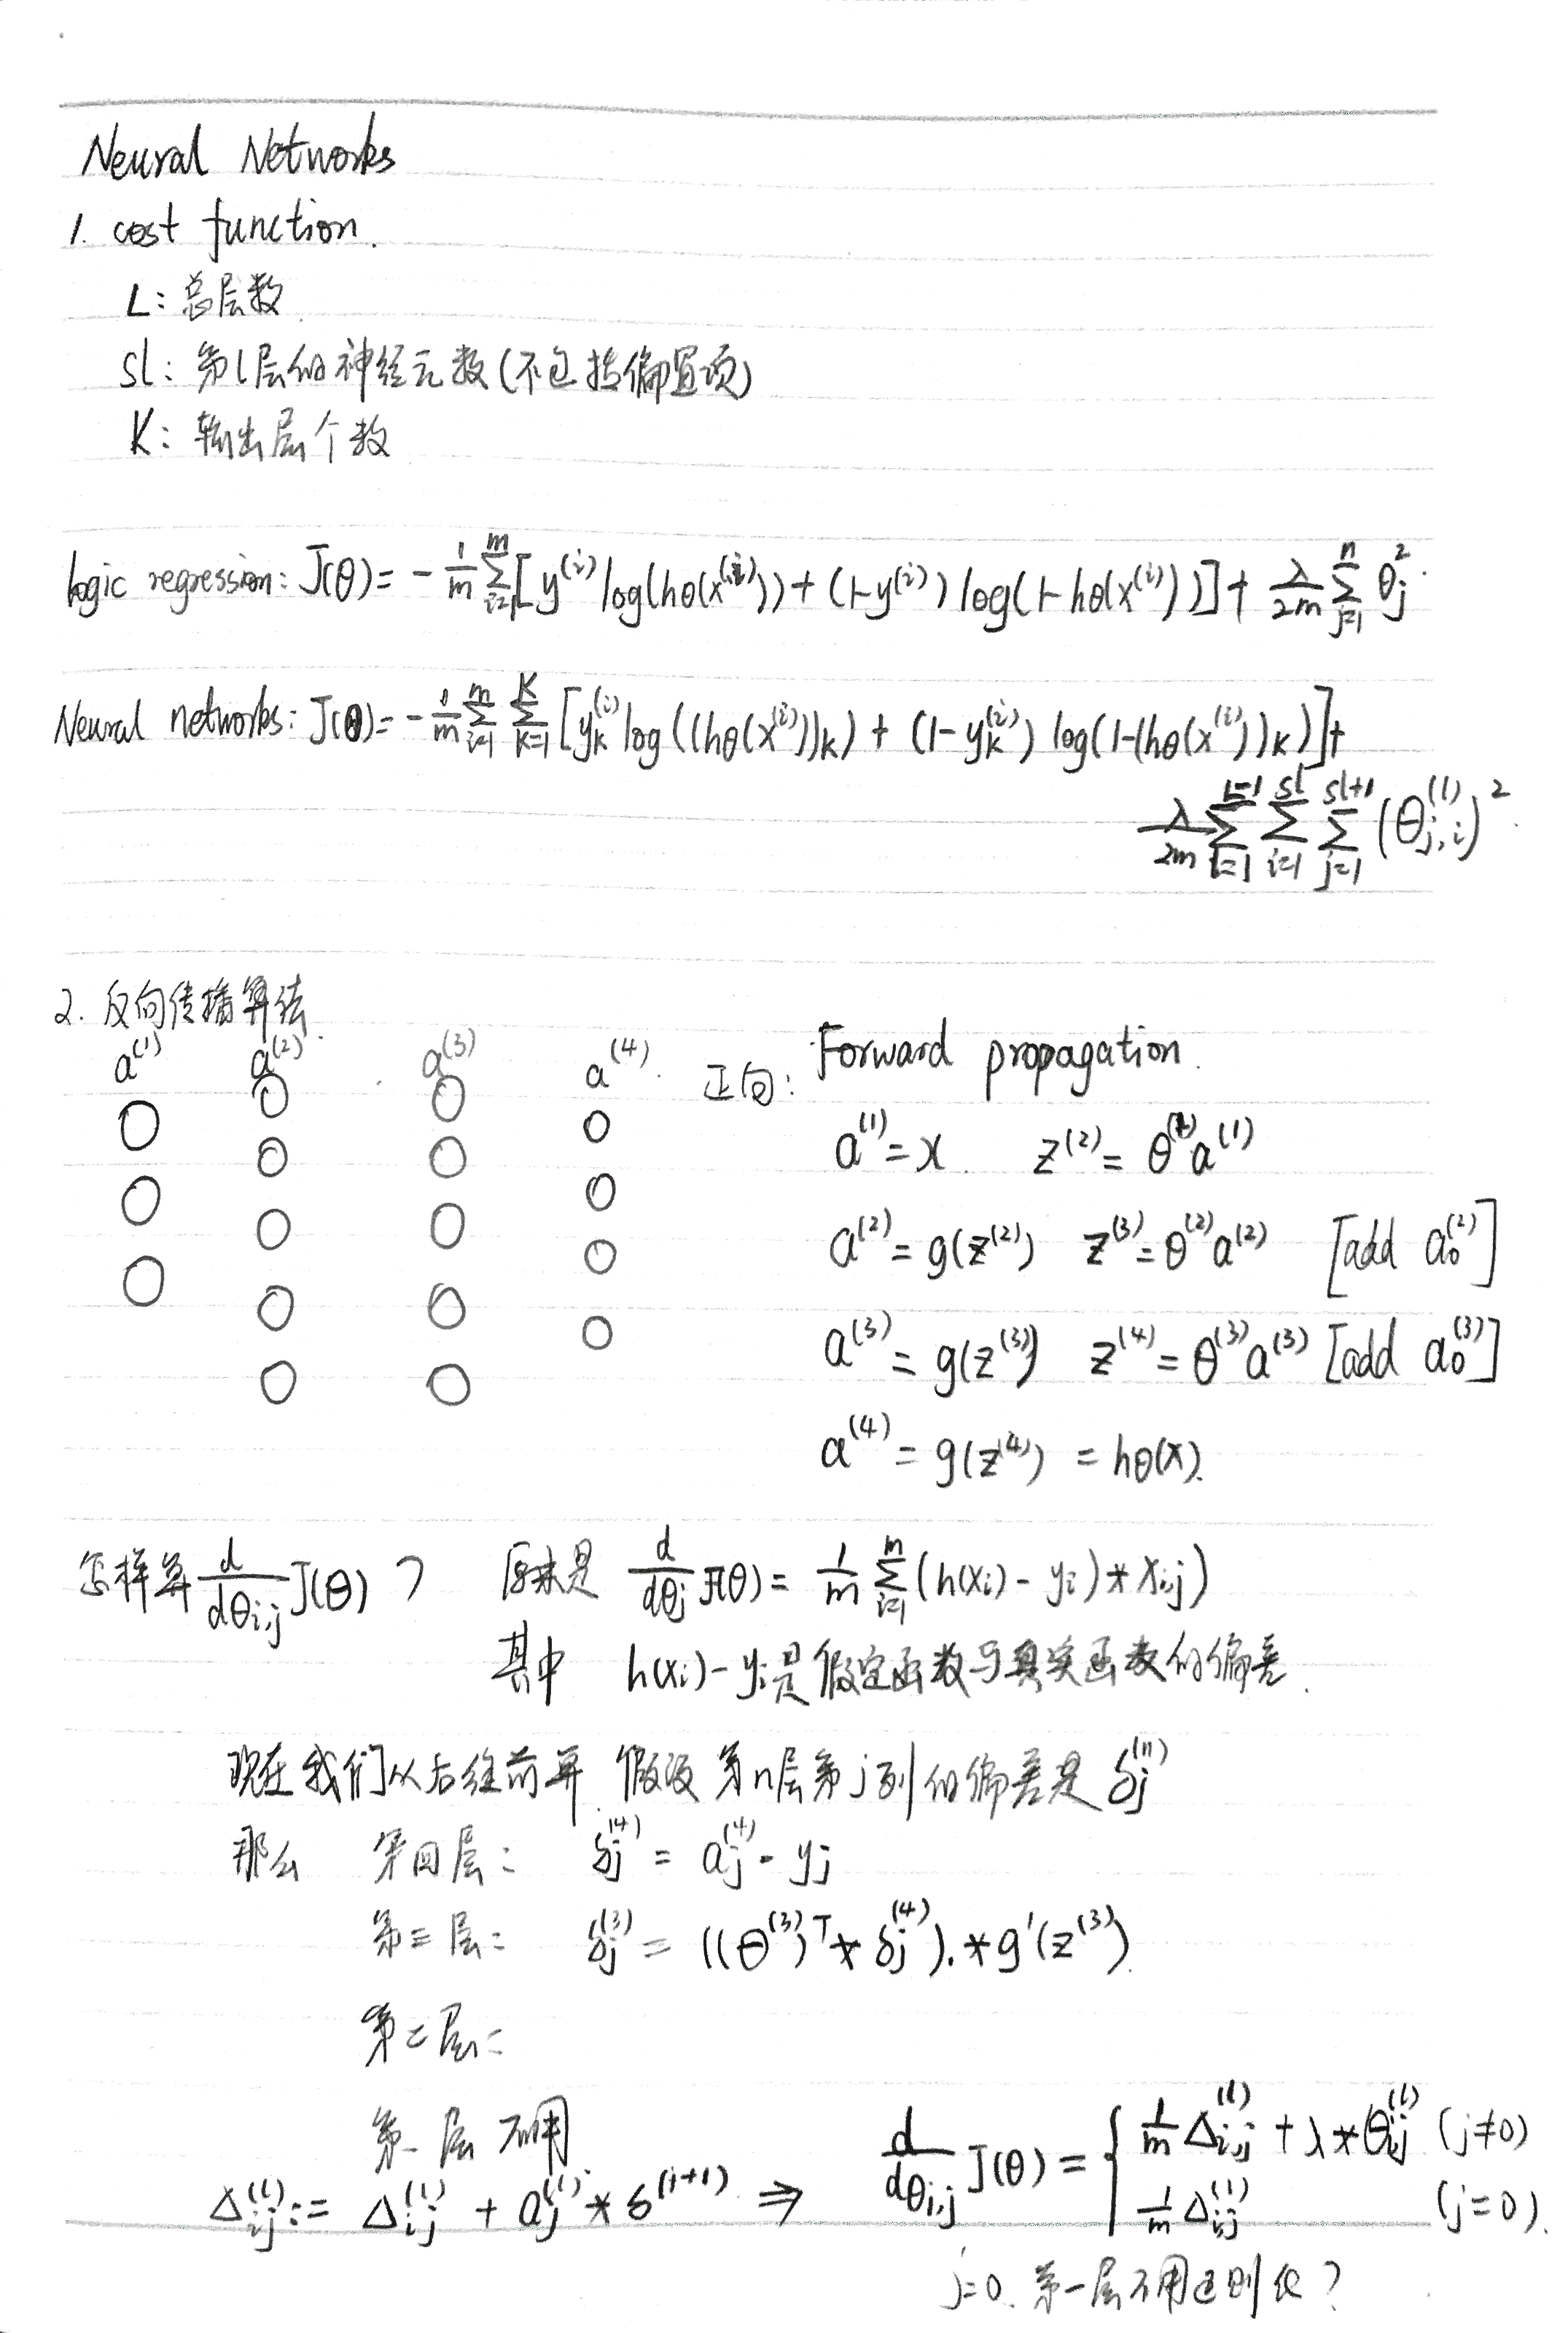 Neural Networks
1. cost function.
L: 总层数
sl: 第l层的神经元数(不包括偏置项)
K: 输出层个数
logic regression: J(θ) = - 1/m Σ_{i=1}^{m} [y^{(i)} log(hθ(x^{(i)})) + (1-y^{(i)}) log(1-hθ(x^{(i)}))] + λ/2m Σ_{j=1}^{n} θ_j^2.
Neural networks: J(θ) = - 1/m Σ_{i=1}^{m} Σ_{k=1}^{K} [y_k^{(i)} log((hθ(x^{(i)}))_k) + (1-y_k^{(i)}) log(1-(hθ(x^{(i)}))_k)] +
λ/2m Σ_{l=1}^{L-1} Σ_{i=1}^{sl} Σ_{j=1}^{sl+1} (θ_{j,i}^{(l)})^2.
2. 反向传播算法
a^{(1)} a^{(2)} a^{(3)} a^{(4)} 正向: Forward propagation.
a^{(1)} = x. z^{(2)} = θ^{(1)} a^{(1)}
a^{(2)} = g(z^{(2)}) z^{(3)} = θ^{(2)} a^{(2)} [add a_0^{(2)}]
a^{(3)} = g(z^{(3)}) z^{(4)} = θ^{(3)} a^{(3)} [add a_0^{(3)}]
a^{(4)} = g(z^{(4)}) = hθ(x).
怎样算 d/dθ_{i,j} J(θ) ? 原来是 d/dθ_j J(θ) = 1/m Σ_{i=1}^{m} (h(x_i) - y_i) * x_{i,j})
其中 h(x_i) - y_i 是假定函数与真实函数的偏差.
现在我们从后往前算. 假设第n层第j列的偏差是 δ_j^{(n)}
那么 第四层: δ_j^{(4)} = a_j^{(4)} - y_j
第三层: δ_j^{(3)} = ((θ^{(3)})^T * δ_j^{(4)}) .* g'(z^{(3)}).
第二层:
第一层 不用
Δ_{ij}^{(l)} := Δ_{ij}^{(l)} + a_j^{(l)} * δ^{(i+1)} ⇒ d/dθ_{i,j} J(θ) = { 1/m Δ_{i,j}^{(l)} + λ * θ_{i,j}^{(l)} (j≠0)
1/m Δ_{i,j}^{(l)} (j=0).
j=0. 第一层不用正则化?